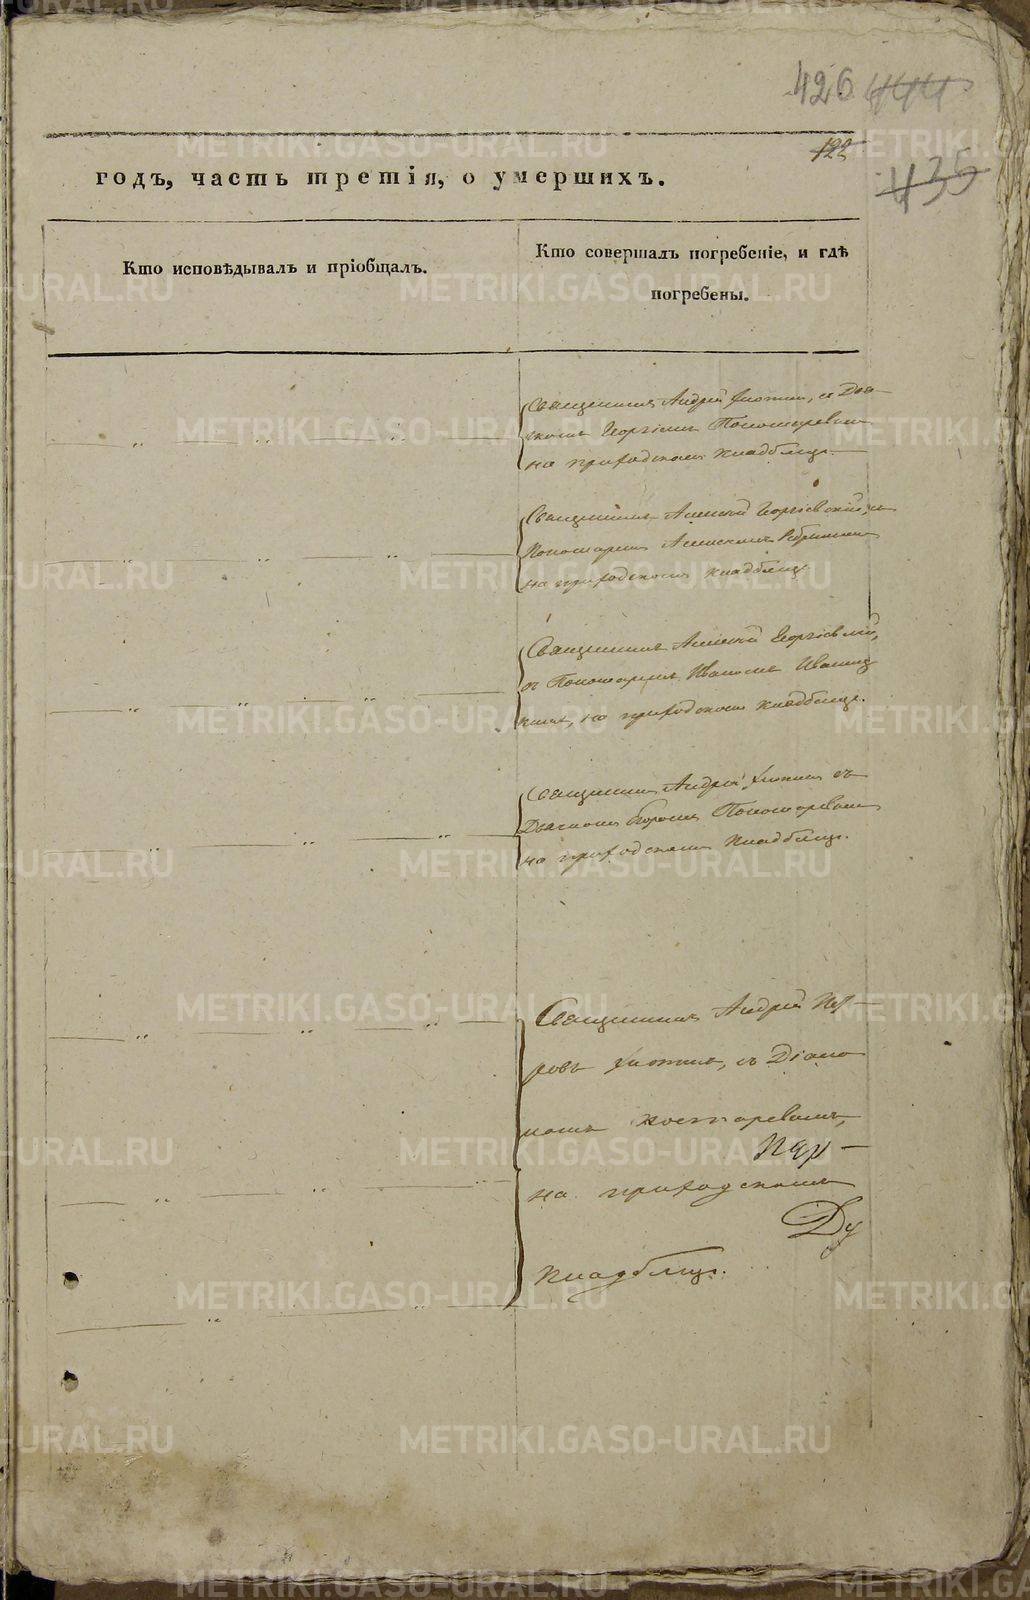 426 444
122
435
годъ, часть третія, о умершихъ.
Кто исповѣдывалъ и пріобщалъ.
Кто совершалъ погребеніе, и гдѣ
погребены.
Священникъ Андрей с Діа-
кономъ Георгіемъ Пономаревымъ
на приходскомъ кладбищѣ.
Священникъ Алексѣй Георгіевскій, съ
Пономаремъ Алексѣемъ
на приходскомъ кладбищѣ
Священникъ Алексѣй Георгіевскій,
съ Пономаремъ Иваномъ
на приходскомъ кладбищѣ.
Священникъ Андрей съ
Діакономъ Егоромъ Пономаревымъ
на приходскомъ кладбищѣ.
Священникъ Андрей
съ Діако
номъ
на приходскомъ
Ду
кладбищѣ.
METRIKI.GASO-URAL.RU